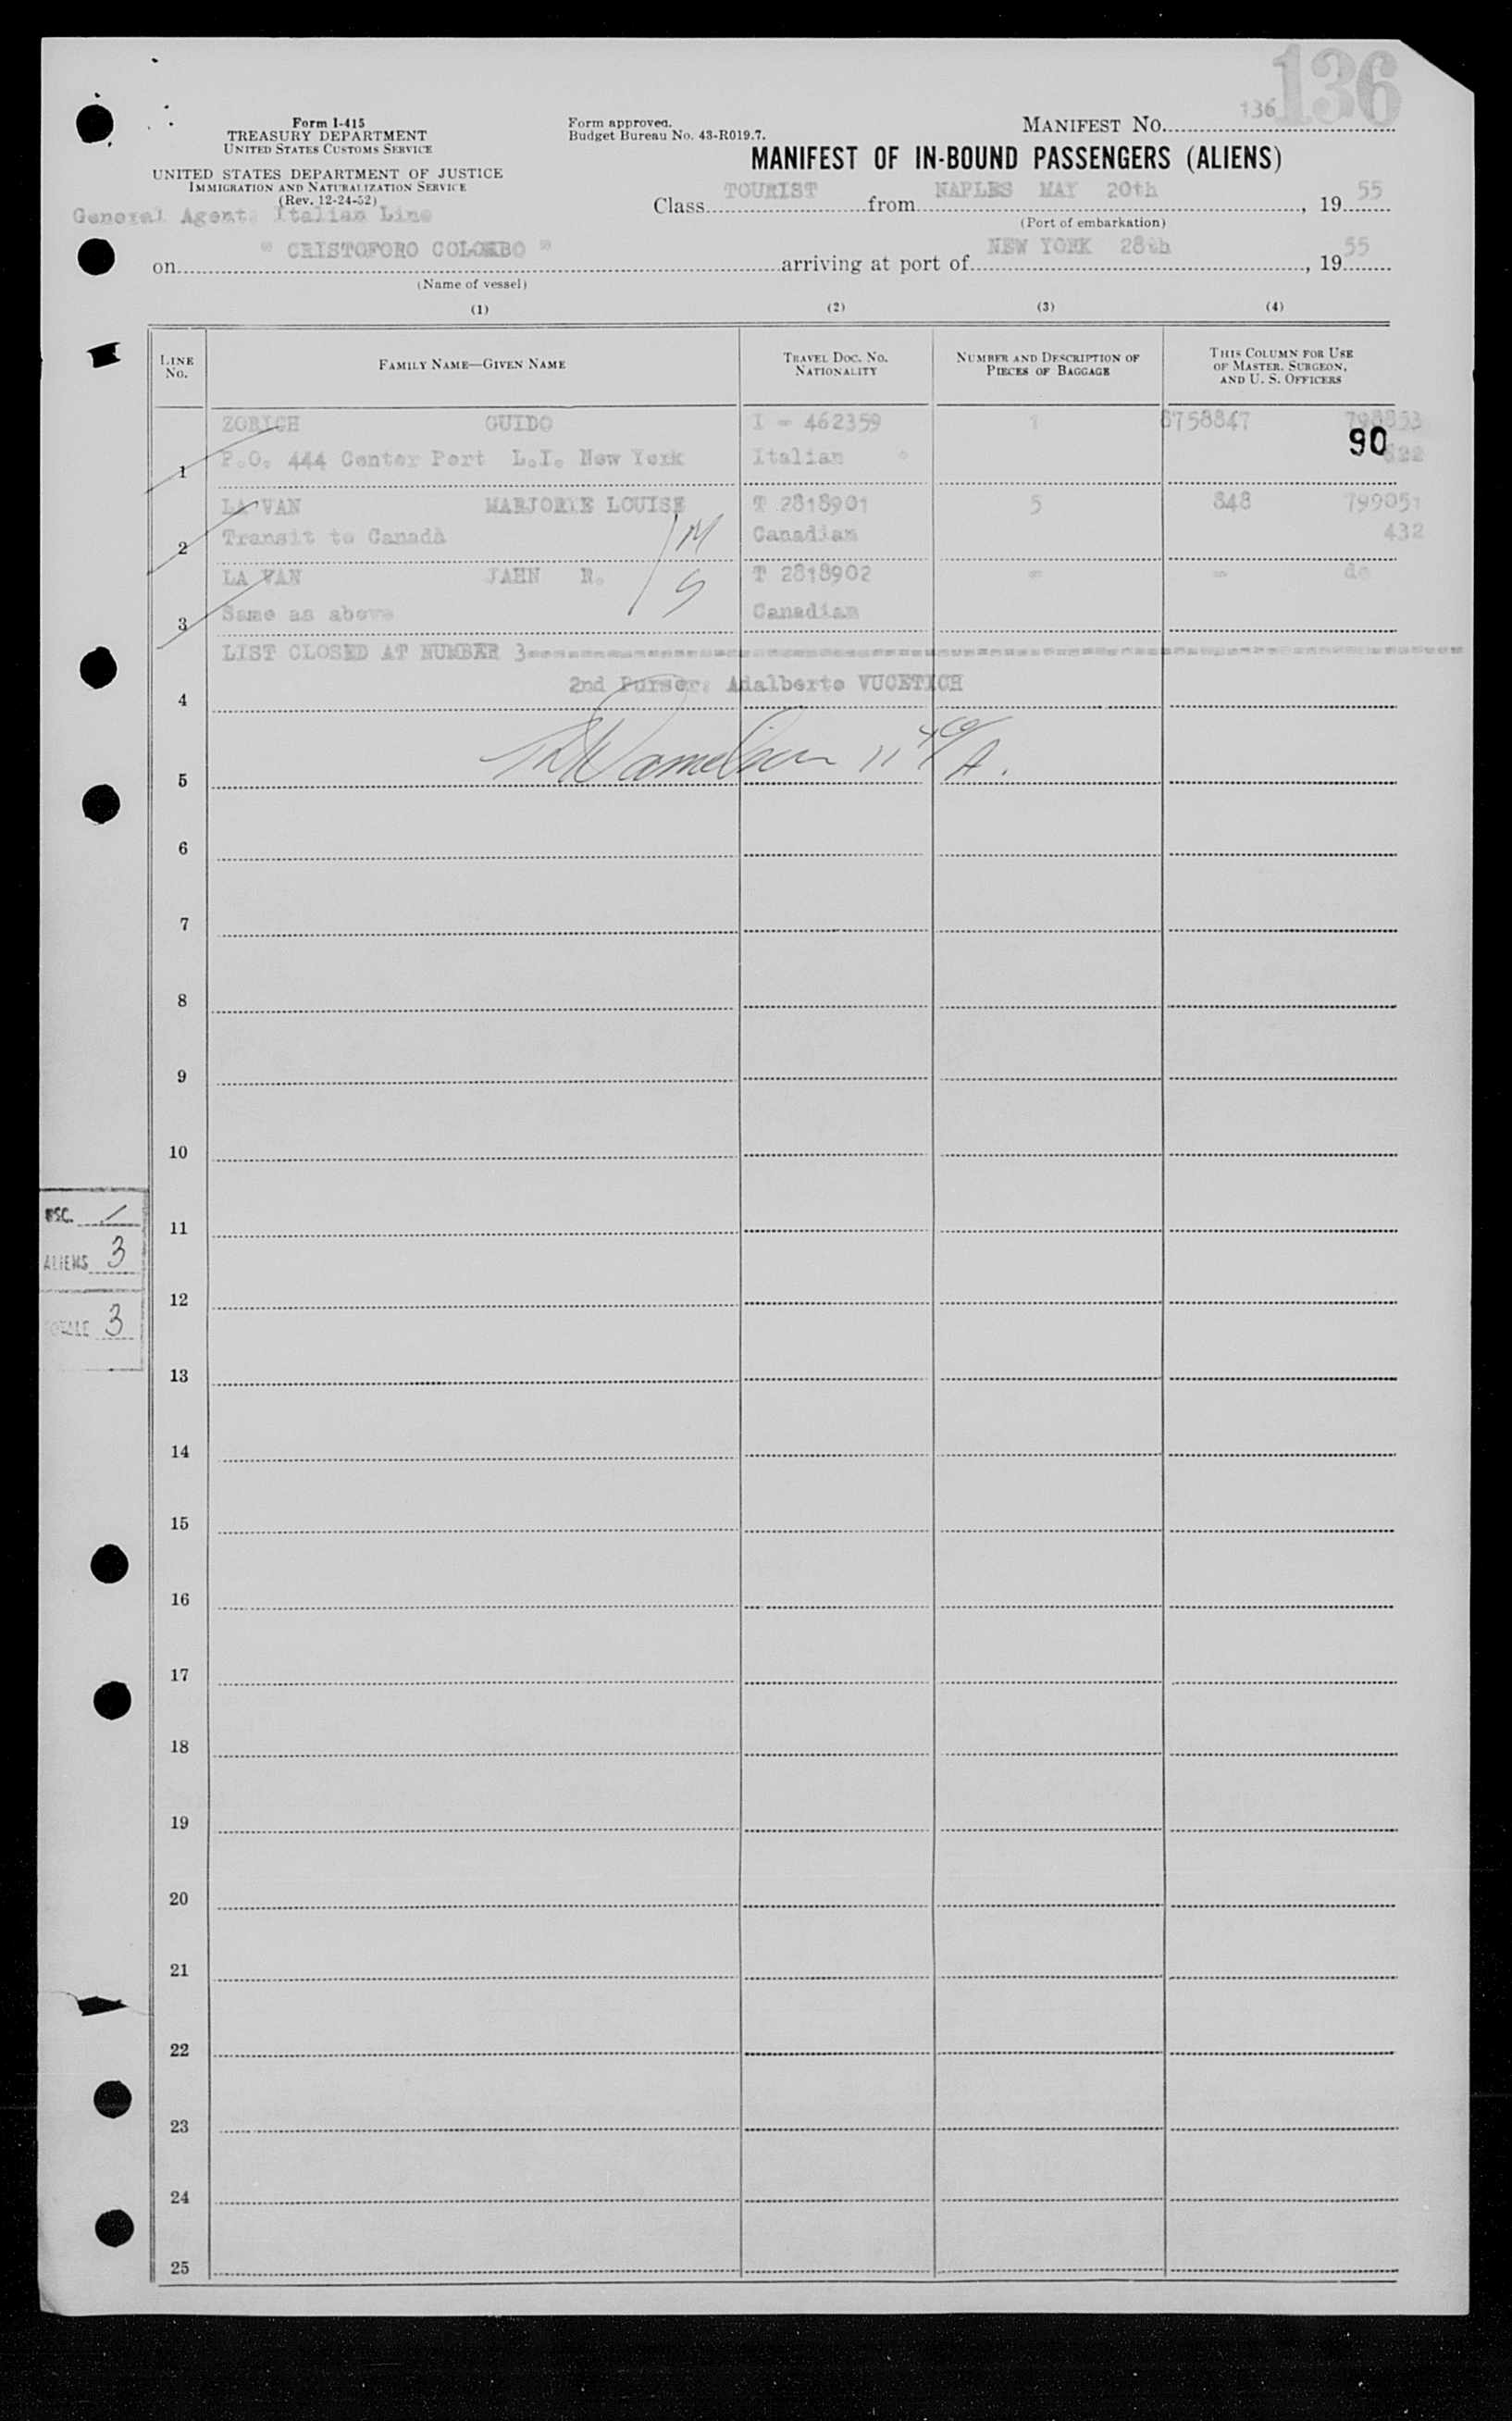 136
Form I-415
TREASURY DEPARTMENT
UNITED STATES CUSTOMS SERVICE
Form approved.
Budget Bureau No. 43-R019.7.
MANIFEST NO. 136
MANIFEST OF IN-BOUND PASSENGERS (ALIENS)
UNITED STATES DEPARTMENT OF JUSTICE
IMMIGRATION AND NATURALIZATION SERVICE
(Rev. 12-24-52)
General Agent: Italian Line
Class TOURIST from NAPLES MAY 20th, 1955
(Port of embarkation)
on " CRISTOFORO COLOMBO " arriving at port of NEW YORK 28th, 1955
(Name of vessel)
(1) (2) (3) (4)
LINE NO.
FAMILY NAME—GIVEN NAME
TRAVEL DOC. NO. NATIONALITY
NUMBER AND DESCRIPTION OF PIECES OF BAGGAGE
THIS COLUMN FOR USE OF MASTER, SURGEON, AND U. S. OFFICERS
ZORICH GUIDO I - 462359 1 6758847 798853
90
1 P.O. 444 Center Port L.I. New York Italian 622
LA VAN MARJORIE LOUISE T 2818901 5 848 799051
2 Transit to Canada M Canadian 432
LA VAN JAHN R. T 2818902 - - do
3 Same as above S Canadian
LIST CLOSED AT NUMBER 3
4 2nd Purser: Adalberto VUCETICH
5 11 40/A.
6
7
8
9
10
11
12
13
14
15
16
17
18
19
20
21
22
23
24
25
USC. /
ALIENS 3
TOTALE 3